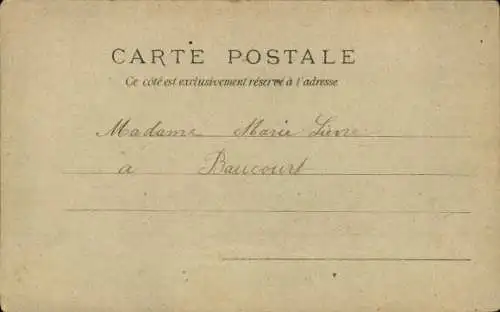 CARTE POSTALE
Ce côté est exclusivement réservé à l'adresse
Madame Marie Lievre
à Baucourt